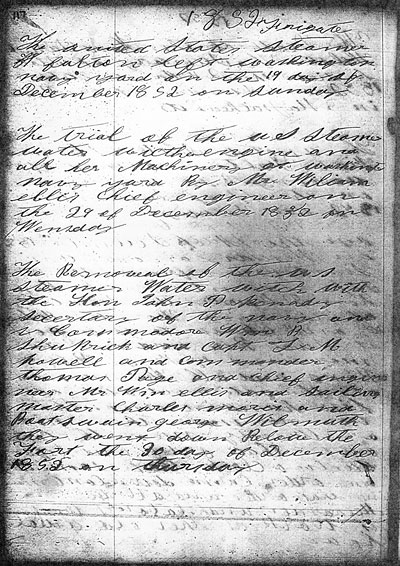 117
The united States steamer
fulton left washington
navy yard on the 19 day of
December 1852 on Sunday
The trial of the u S steamer
water witch engine and
all her Machinery at washington
Navy yard by Mr William
ellis chief engineer on
the 29 of December 1852 on
Wensday
The Removeal of the u s
steamer Water witch with
the Hon John P Kennedy
Secretary of the navy and
Commodore Wm B
Shubrick and Capt L M
Powell and commander
thomas Page and chief engi
neer Mr Wm ellis and Sailing
master Charles and
Boatswain george Wilmuth
they went down Below the
Fort the 30 day of December
1852 on thursday